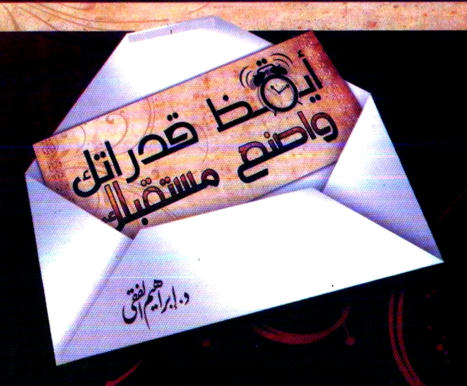 أيقظ قدراتك
واصنع مستقبلك
د. إبراهيم الفقي